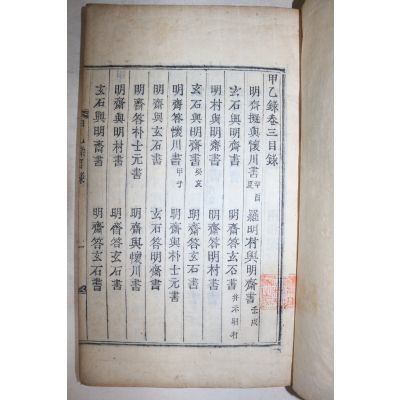 甲乙錄卷三目錄
明齋擬與懷川書辛酉夏 羅明村與明齋書壬戌
玄石與明齋書 明齋答玄石書幷示明村
明村與明齋書 明齋答明村書
玄石與明齋書癸亥 明齋答玄石書
明齋答懷川書甲子 明齋與朴士元書
玄石與明齋書 玄石答明齋書
明齋答朴士元書 明齋與懷川書
明齋與明村書 明齋答玄石書
玄石與明齋書 明齋答玄石書